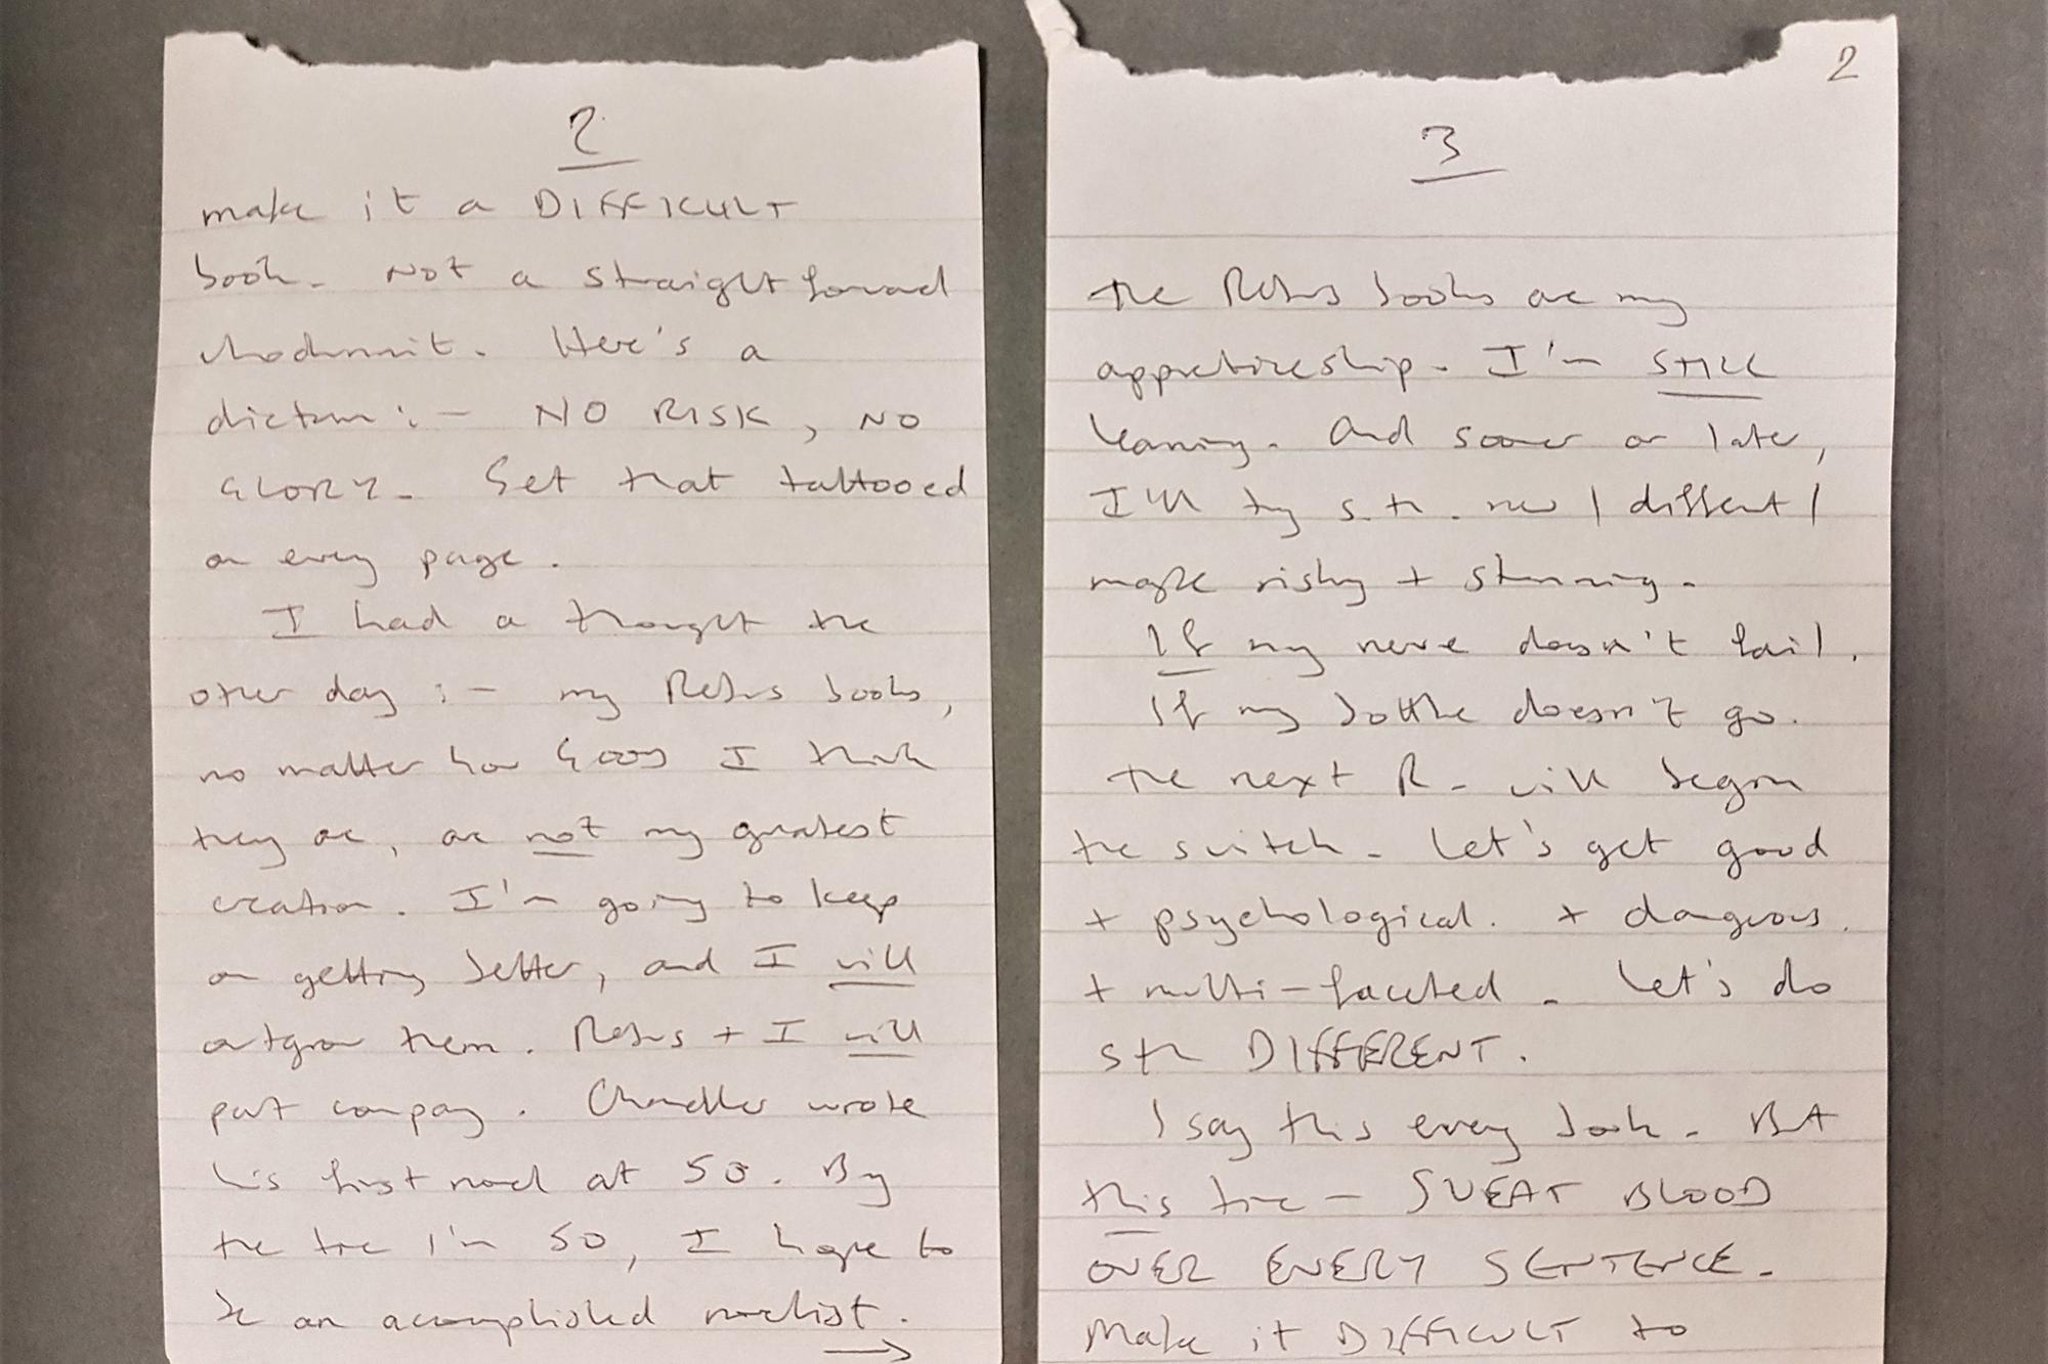 2
make it a DIFFICULT
book. Not a straightforward
whodunnit. Here's a
dictum:- NO RISK, NO
GLORY. Get that tattooed
on every page.
I had a thought the
other day:- my Rebus books,
no matter how GOOD I think
they are, are not my greatest
creation. I'm going to keep
on getting better, and I will
outgrow them. Rebus + I will
part company. Chandler wrote
his first novel at 50. By
the time I'm 50, I hope to
be an accomplished novelist.
→
2
3
The Rebus books are my
apprenticeship. I'm STILL
learning. And sooner or later,
I'll try s.th. new / different /
maybe risky + stunning.
If my nerve doesn't fail.
If my bottle doesn't go.
The next R. will begin
the switch. Let's get good
+ psychological. + dangerous.
+ multi-faceted. Let's do
sth DIFFERENT.
I say this every book. BUT
this time – SWEAT BLOOD
OVER EVERY SENTENCE.
Make it DIFFICULT to